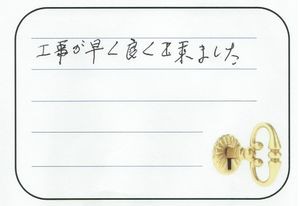 工事が早く良く出来ました